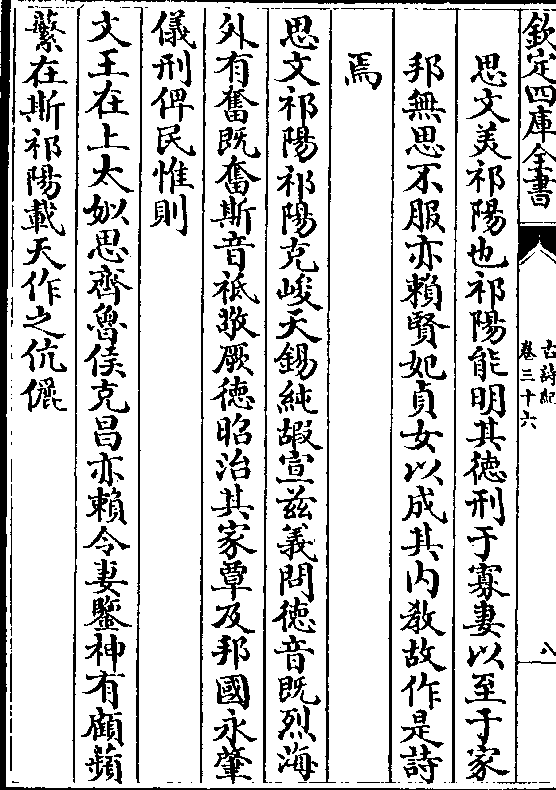 欽定四庫全書
古詩紀
卷三十六
八
思文美祁陽也祁陽能明其徳刑于寡妻以至于家
邦無思不服亦賴賢妃貞女以成其内教故作是詩
焉
思文祁陽祁陽克峻天錫純嘏宣兹義問徳音既烈海
外有奮既奮斯音祗敬厥徳昭治其家覃及邦國永肇
儀刑俾民惟則
文王在上太姒思齊魯侯克昌亦賴令妻鑒神有顧蘋
蘩在斯祁陽載天作之伉儷